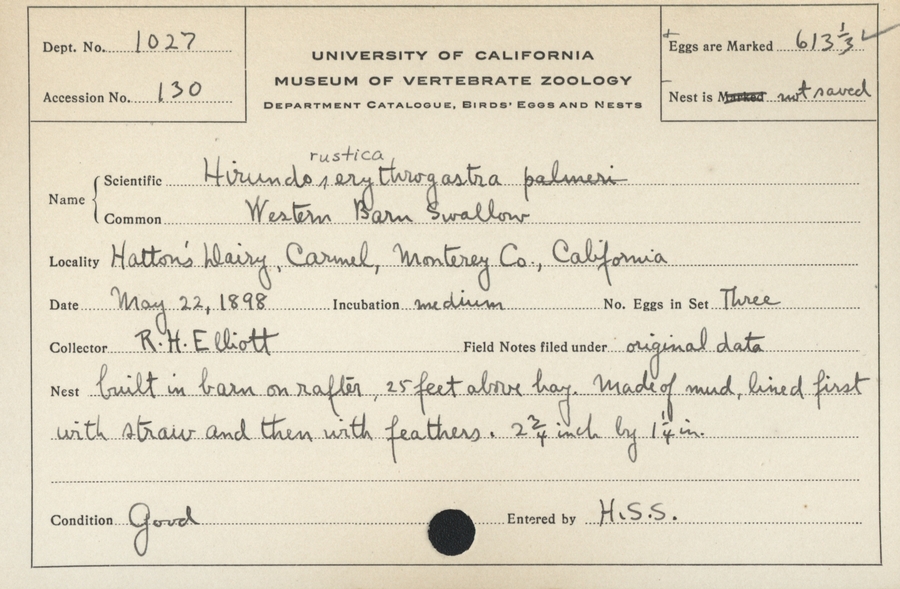 Dept. No. 1027
Accession No. 130
UNIVERSITY OF CALIFORNIA
MUSEUM OF VERTEBRATE ZOOLOGY
DEPARTMENT CATALOGUE, BIRDS' EGGS AND NESTS
Eggs are Marked 613 1/3
Nest is Marked not saved
rustica
Name Scientific Hirundo, erythrogastra palmeri
Common Western Barn Swallow
Locality Hatton's Dairy, Carmel, Monterey Co., California
Date May 22, 1898 Incubation medium No. Eggs in Set Three
Collector R.H. Elliott Field Notes filed under original data
Nest built in barn on rafter, 25 feet above hay. Made of mud, lined first
with straw and then with feathers. 2 3/4 inch by 1 1/4 in.
Condition Good Entered by H.S.S.